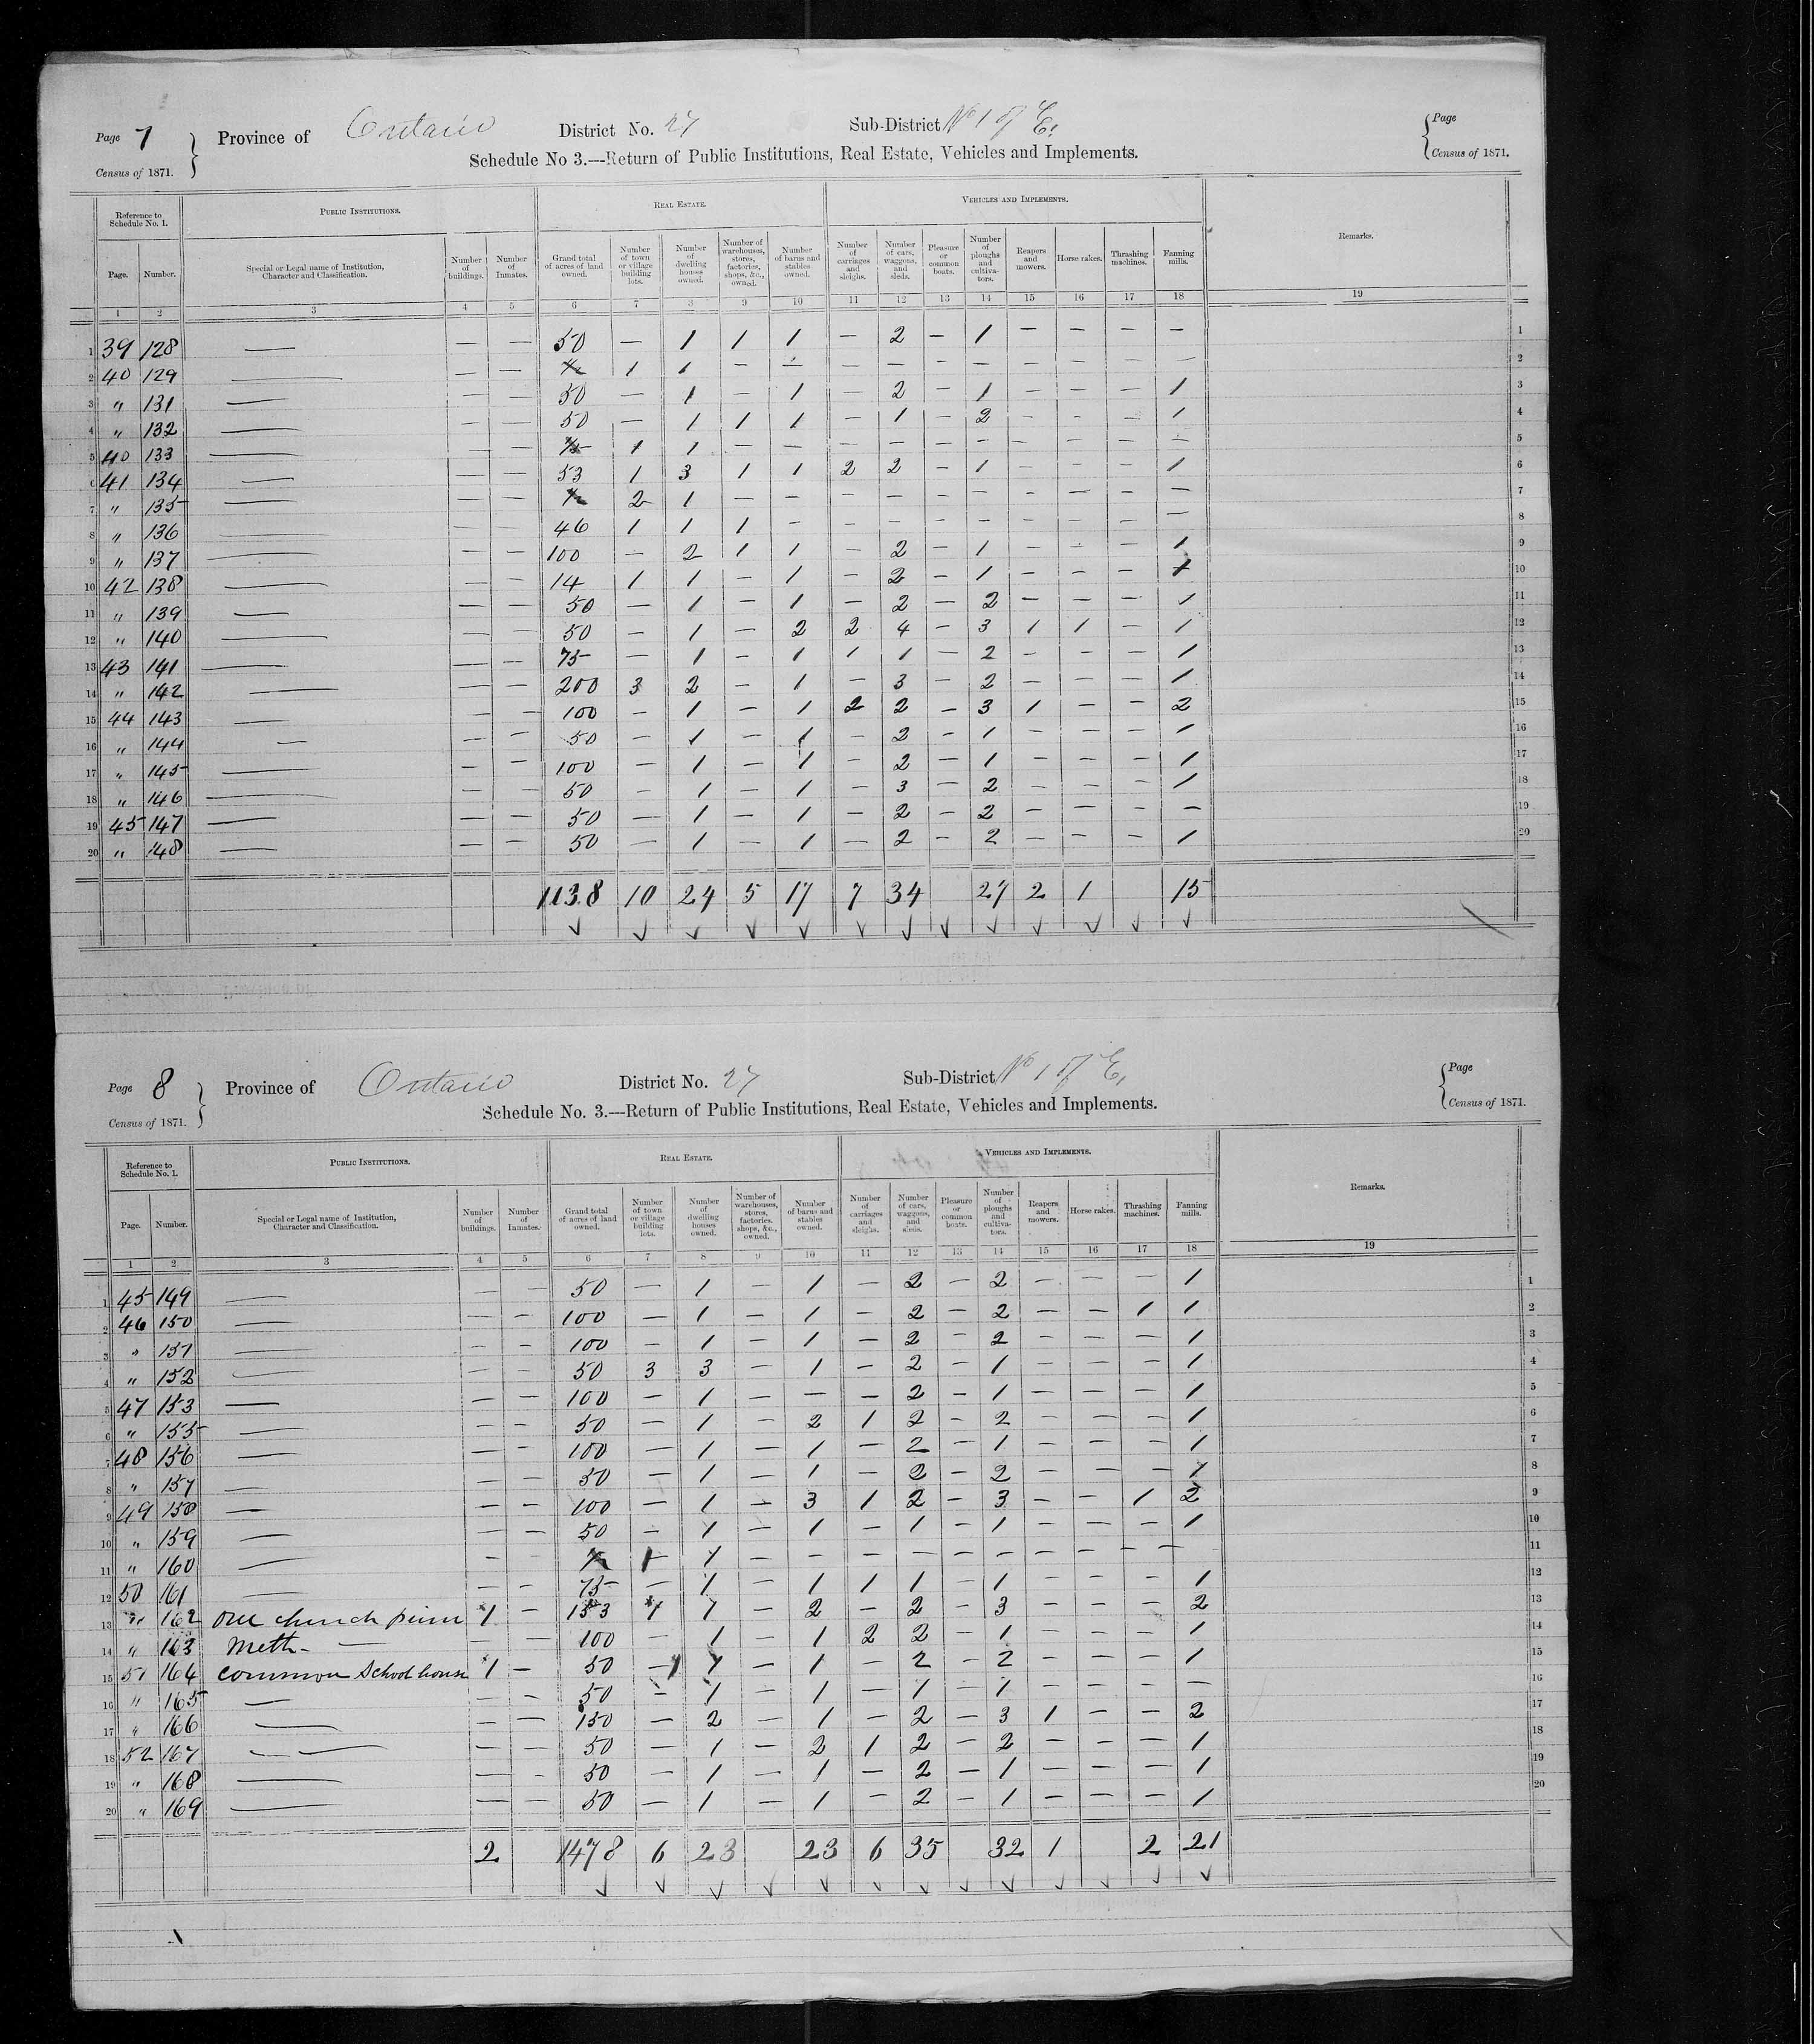 Page 7 Province of Ontario District No. 27 Sub-District No 1 of E. Page
Census of 1871. Schedule No 3.—Return of Public Institutions, Real Estate, Vehicles and Implements. Census of 1871.
Reference to Schedule No. 1. PUBLIC INSTITUTIONS. REAL ESTATE. VEHICLES AND IMPLEMENTS. Remarks.
Page. Number. Special or Legal name of Institution, Character and Classification. Number of buildings. Number of Inmates. Grand total of acres of land owned. Number of town or village building lots. Number of dwelling houses owned. Number of warehouses, stores, factories, shops, &c., owned. Number of barns and stables owned. Number of carriages and sleighs. Number of cars, waggons, and sleds. Pleasure or common boats. Number of ploughs and cultiva-tors. Reapers and mowers. Horse rakes. Thrashing machines. Fanning mills.
1 2 3 4 5 6 7 8 9 10 11 12 13 14 15 16 17 18 19
1 39 128 — — — 50 — 1 1 1 — 2 — 1 — — — — 1
2 40 129 — — — 1 1 — — — — — — — — — — 2
3 " 131 — — — 50 — 1 — 1 — 2 — 1 — — — 1 3
4 " 132 — — — 50 — 1 1 1 — 1 — 2 — — — 1 4
5 40 133 — — — 1 1 — — — — — — — — — — 5
6 41 134 — — — 53 1 3 1 1 2 2 — 1 — — — 1 6
7 " 135 — — — 2 1 — — — — — — — — — — 7
8 " 136 — — — 46 1 1 1 — — — — — — — — — 8
9 " 137 — — — 100 — 2 1 1 — 2 — 1 — — — 1 9
10 42 138 — — — 14 1 1 — 1 — 2 — 1 — — — 1 10
11 " 139 — — — 50 — 1 — 1 — 2 — 2 — — — 1 11
12 " 140 — — — 50 — 1 — 2 2 4 — 3 1 1 — 1 12
13 43 141 — — — 75 — 1 — 1 1 1 — 2 — — — 1 13
14 " 142 — — — 200 3 2 — 1 — 3 — 2 — — — 1 14
15 44 143 — — — 100 — 1 — 1 2 2 — 3 1 — — 2 15
16 " 144 — — — 50 — 1 — 1 — 2 — 1 — — — 1 16
17 " 145 — — — 100 — 1 — 1 — 2 — 1 — — — 1 17
18 " 146 — — — 50 — 1 — 1 — 3 — 2 — — — 1 18
19 45 147 — — — 50 — 1 — 1 — 2 — 2 — — — — 19
20 " 148 — — — 50 — 1 — 1 — 2 — 2 — — — 1 20
1138 10 24 5 17 7 34 27 2 1 15
Page 8 Province of Ontario District No. 27 Sub-District No 1 of E. Page
Census of 1871. Schedule No. 3.—Return of Public Institutions, Real Estate, Vehicles and Implements. Census of 1871.
Reference to Schedule No. 1. PUBLIC INSTITUTIONS. REAL ESTATE. VEHICLES AND IMPLEMENTS. Remarks.
Page. Number. Special or Legal name of Institution, Character and Classification. Number of buildings. Number of Inmates. Grand total of acres of land owned. Number of town or village building lots. Number of dwelling houses owned. Number of warehouses, stores, factories, shops, &c., owned. Number of barns and stables owned. Number of carriages and sleighs. Number of cars, waggons, and sleds. Pleasure or common boats. Number of ploughs and cultiva-tors. Reapers and mowers. Horse rakes. Thrashing machines. Fanning mills.
1 2 3 4 5 6 7 8 9 10 11 12 13 14 15 16 17 18 19
1 45 149 — — — 50 — 1 — 1 — 2 — 2 — — — 1 1
2 46 150 — — — 100 — 1 — 1 — 2 — 2 — — 1 1 2
3 " 151 — — — 100 — 1 — 1 — 2 — 2 — — — 1 3
4 " 152 — — — 50 3 3 — 1 — 2 — 1 — — — 1 4
5 47 153 — — — 100 — 1 — — — 2 — 1 — — — 1 5
6 " 155 — — — 50 — 1 — 2 1 2 — 2 — — — 1 6
7 48 156 — — — 100 — 1 — 1 — 2 — 1 — — — 1 7
8 " 157 — — — 50 — 1 — 1 — 2 — 2 — — — 1 8
9 49 158 — — — 100 — 1 — 3 1 2 — 3 — — 1 2 9
10 " 159 — — — 50 — 1 — 1 — 1 — 1 — — — 1 10
11 " 160 — — — 1 1 — — — — — — — — — 11
12 50 161 — — — 75 — 1 — 1 1 1 — 1 — — — 1 12
13 " 162 one church 1 — 153 1 1 — 2 — 2 — 3 — — — 2 13
14 " 163 Meth — — — 100 — 1 — 1 2 2 — 1 — — — 1 14
15 51 164 common School house 1 — 50 — 1 1 — 1 — 2 — 2 — — — 1 15
16 " 165 — — — 50 — 1 — 1 — 1 — 1 — — — — 16
17 " 166 — — — 150 — 2 — 1 — 2 — 3 1 — — 2 17
18 52 167 — — — 50 — 1 — 2 1 2 — 2 — — — 1 18
19 " 168 — — — 50 — 1 — 1 — 2 — 1 — — — 1 19
20 " 169 — — — 50 — 1 — 1 — 2 — 1 — — — 1 20
2 1478 6 23 23 6 35 32 1 2 21